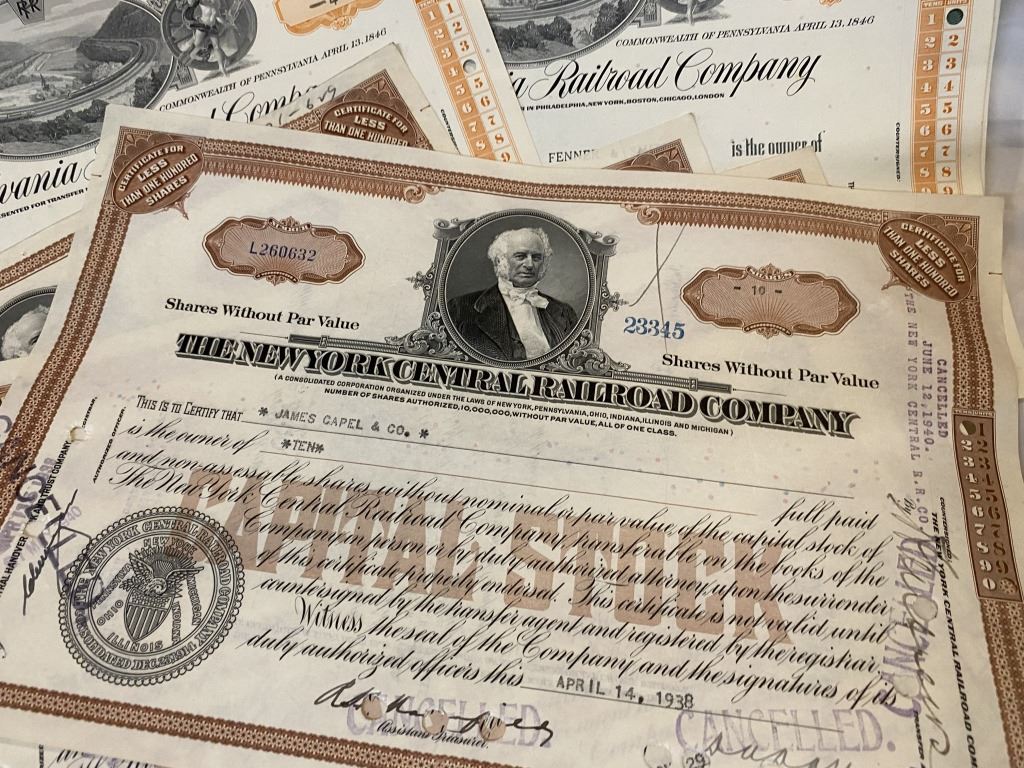 COMMONWEALTH OF PENNSYLVANIA APRIL 13, 1846
COMMONWEALTH OF PENNSYLVANIA APRIL 13, 1846
Railroad Company
IN PHILADELPHIA, NEW YORK, BOSTON, CHICAGO, LONDON
FENNER
is the owner of
COUNTERSIGNED
1 2 3 4 5 6 7 8 9
CERTIFICATE FOR
LESS
THAN ONE HUNDRED
CERTIFICATE FOR
LESS
THAN ONE HUNDRED
SHARES
CERTIFICATE FOR
LESS
THAN ONE HUNDRED
SHARES
L260632
- 10 -
23345
Shares Without Par Value
Shares Without Par Value
THE NEW YORK CENTRAL RAILROAD COMPANY
(A CONSOLIDATED CORPORATION ORGANIZED UNDER THE LAWS OF NEW YORK, PENNSYLVANIA, OHIO, INDIANA, ILLINOIS AND MICHIGAN)
NUMBER OF SHARES AUTHORIZED, 10,000,000, WITHOUT PAR VALUE, ALL OF ONE CLASS.
THIS IS TO CERTIFY THAT * JAMES CAPEL & CO. *
is the owner of *TEN*
full paid
and non-assessable shares without nominal or par value of the capital stock of
The New York Central Railroad Company, transferable on the books of the
Company in person or by duly authorized attorney upon the surrender
of this certificate properly endorsed. This certificate is not valid until
countersigned by the transfer agent and registered by the registrar.
Witness the seal of the Company and the signatures of its
duly authorized officers this APRIL 14, 1938
CAPITAL STOCK
Assistant Treasurer.
CANCELLED.
CANCELLED.
CANCELLED
JUNE 12 1940.
THE NEW YORK CENTRAL R. R. CO.
THE NEW YORK CENTRAL RAILROAD COM
THE NEW YORK CENTRAL RAILROAD COMPANY
NEW YORK
OHIO
ILLINOIS
CONSOLIDATED DEC. 23, 1914